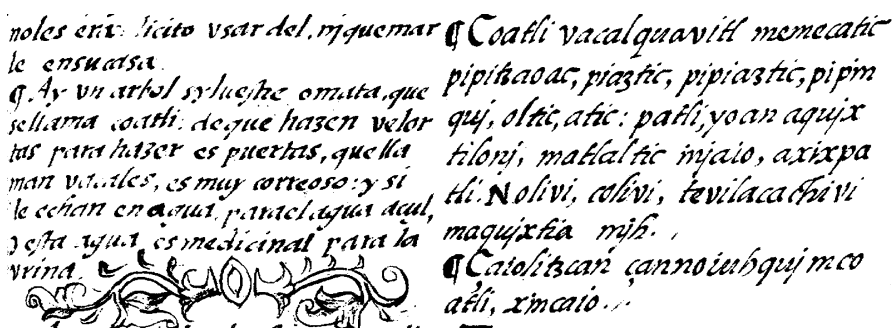 noles era licito vsar del, nj quemar
le en su casa.
¶ Ay vn arbol syluestre o mata, que
se llama coatli: de que hazen velor
tas para hazer es puertas, que lla
man vacales, es muy correoso: y si
le echan en agua, para el agua açul,
y esta agua, es medicinal para la
vrina.
¶ Coatli vacalquavitl memecatic
pipitzaoac, piaztic, pipiaztic, pipin
quj, oltic, atic: patli, yoan aqujx
tilonj, matlaltic injaio, axixpa
tli. Nolivi, colivi, tevilacachivi
maqujxtia njh.
¶ Caiolitzcan çannoiuhquj mco
atli, xmcaio.